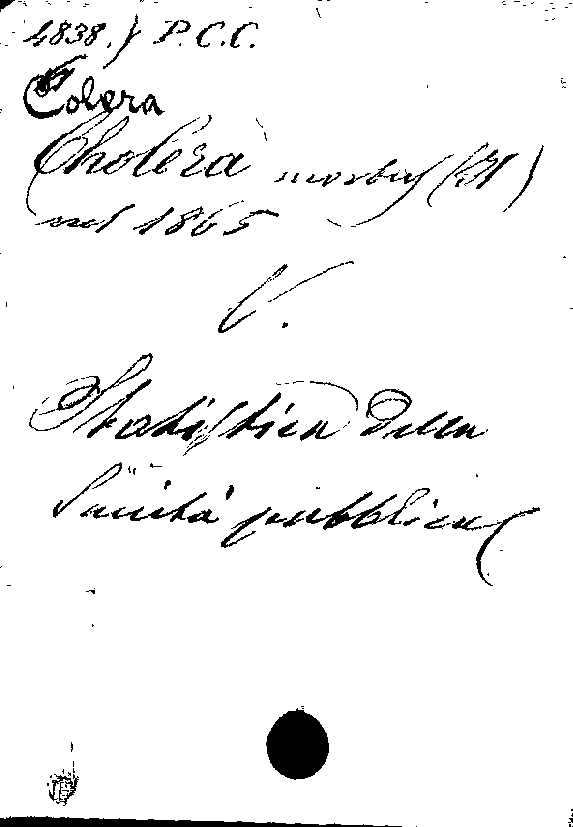 4838.) P.C.C.
Colera
Cholera morbus (Il)
nel 1865
V.
Statistica della
Sanità pubblica